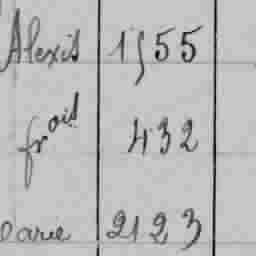 Alexis 1555
frois 432
Marie 2123